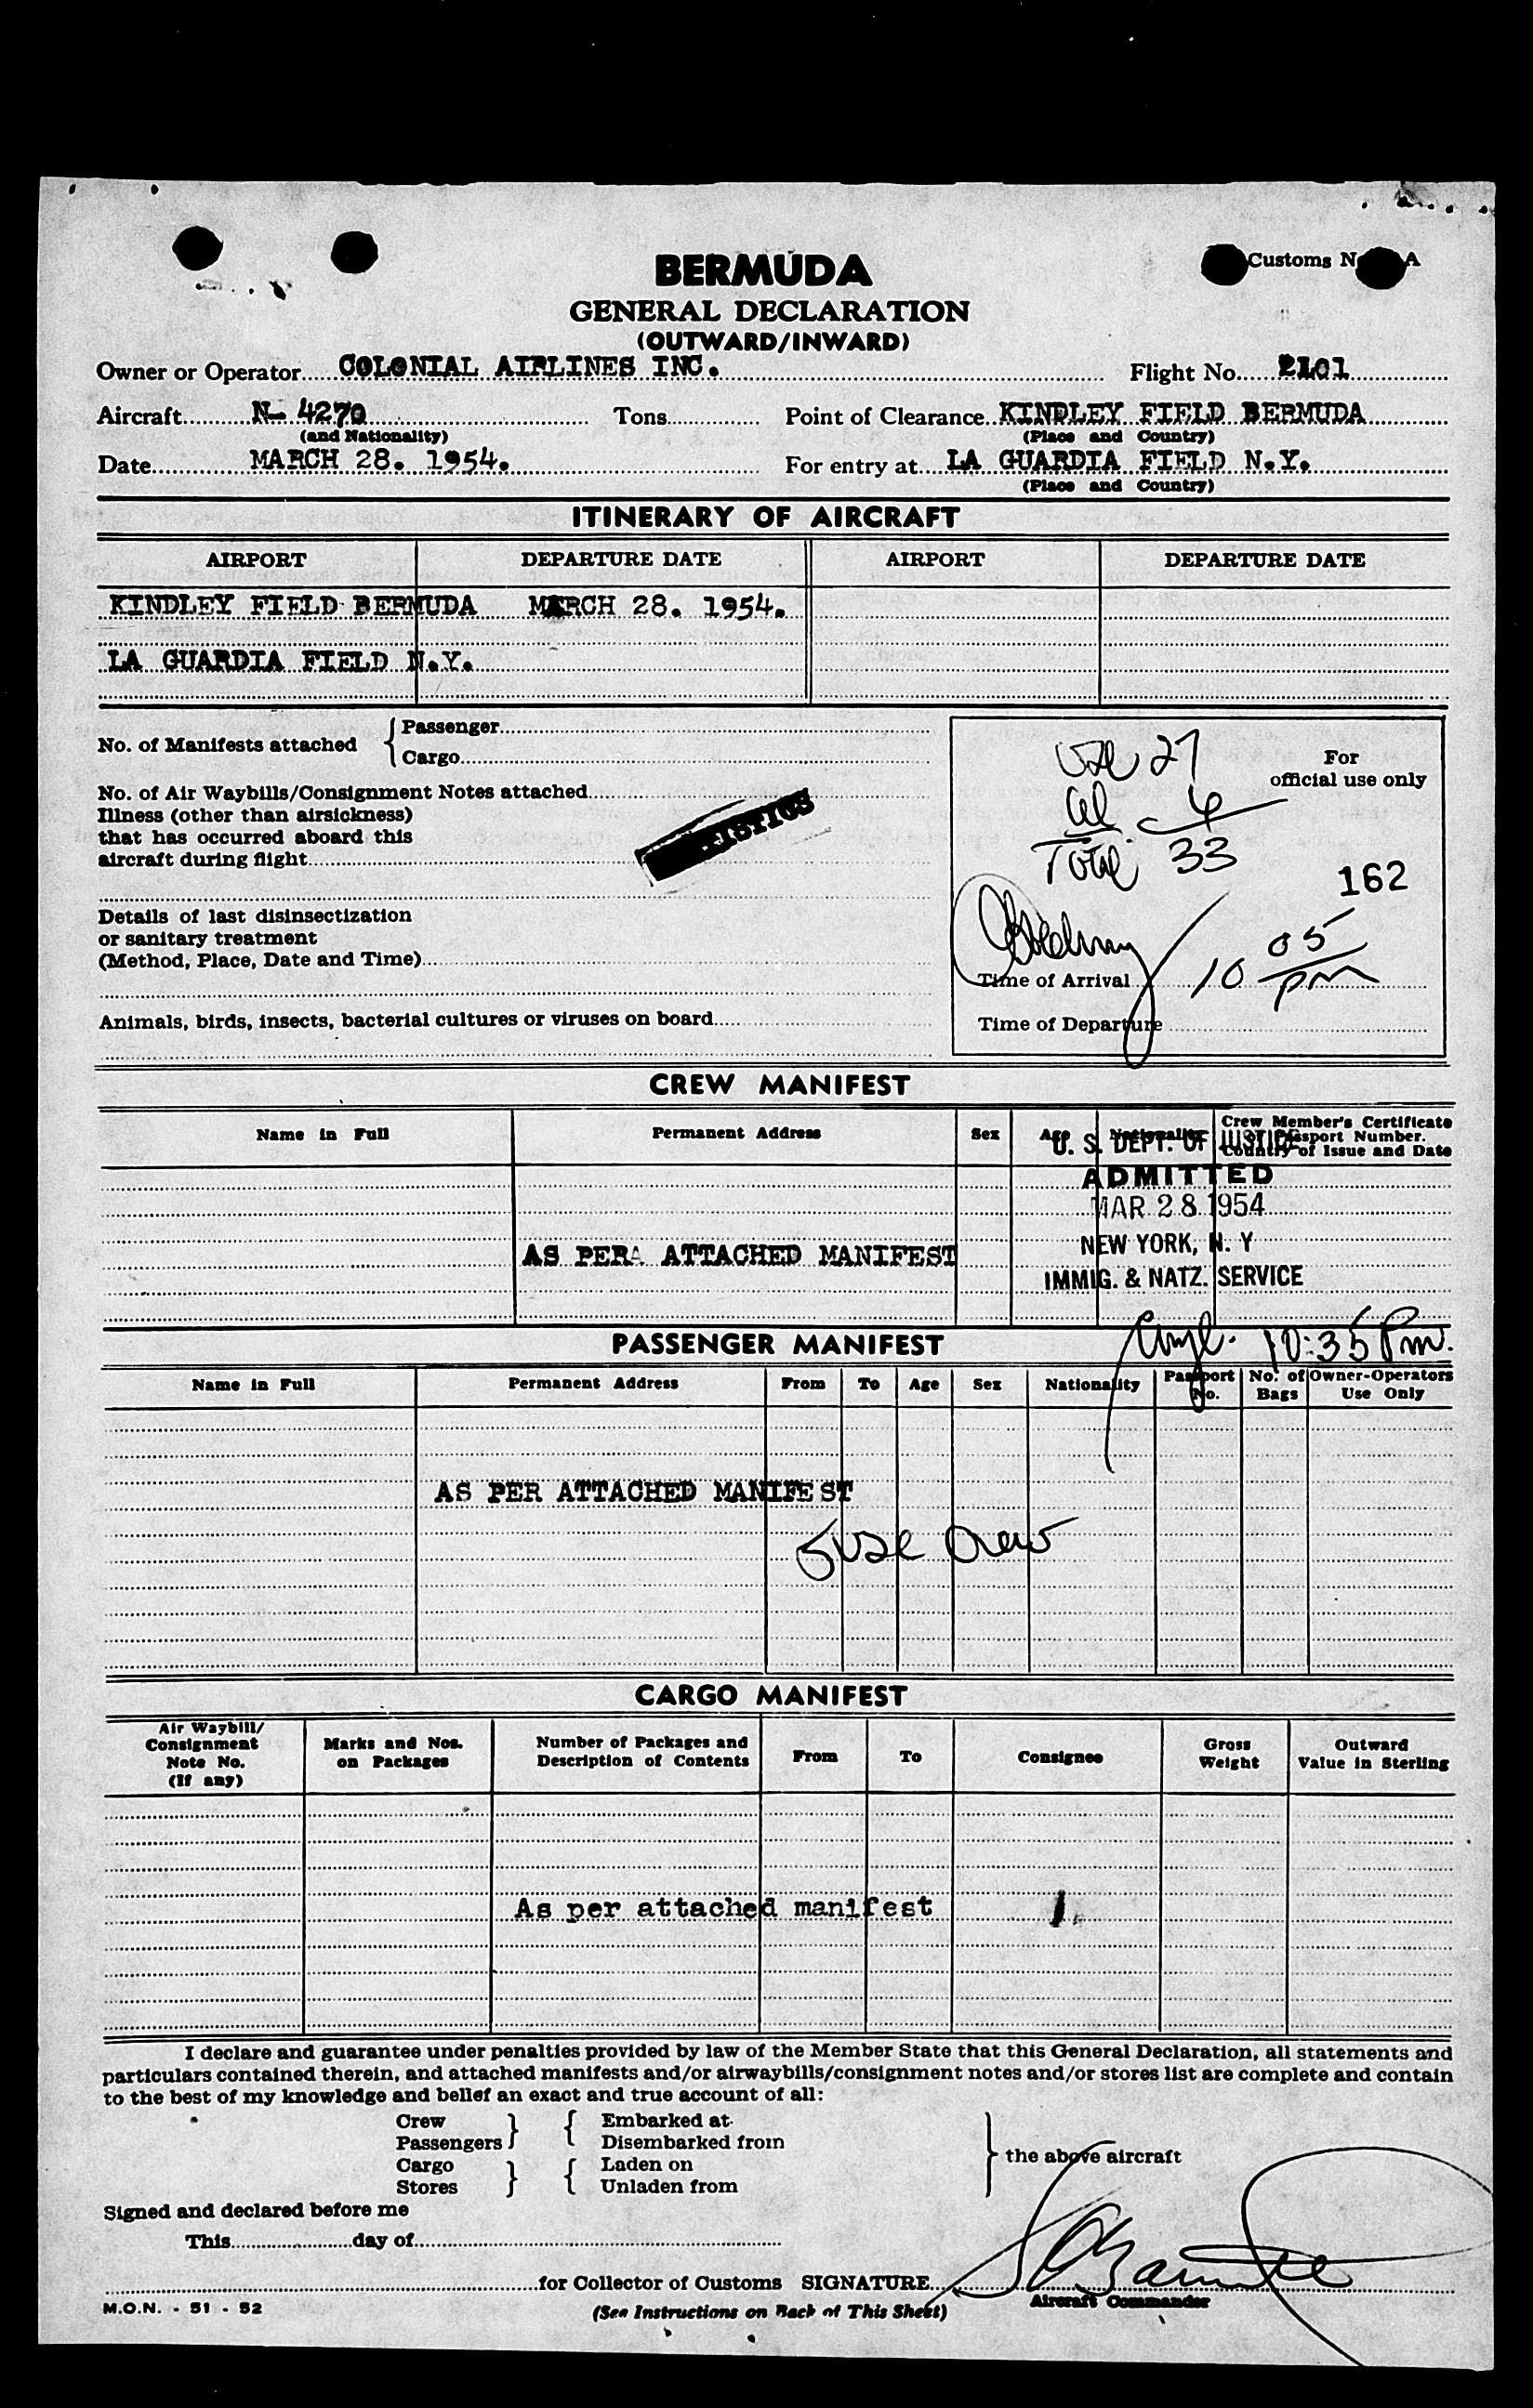 Customs N A
BERMUDA
GENERAL DECLARATION
(OUTWARD/INWARD)
Owner or Operator COLONIAL AIRLINES INC. Flight No. 2101
Aircraft N- 4270 Tons Point of Clearance KINDLEY FIELD BERMUDA
(and Nationality) (Place and Country)
Date MARCH 28. 1954. For entry at LA GUARDIA FIELD N.Y.
(Place and Country)
ITINERARY OF AIRCRAFT
AIRPORT DEPARTURE DATE AIRPORT DEPARTURE DATE
KINDLEY FIELD BERMUDA MARCH 28. 1954.
LA GUARDIA FIELD N.Y.
No. of Manifests attached Passenger
Cargo
No. of Air Waybills/Consignment Notes attached
Illness (other than airsickness)
that has occurred aboard this
aircraft during flight
Details of last disinsectization
or sanitary treatment
(Method, Place, Date and Time)
Animals, birds, insects, bacterial cultures or viruses on board
27
For
official use only
6
Total 33
162
Time of Arrival 10 05 pm
Time of Departure
CREW MANIFEST
Name in Full Permanent Address Sex Age Nationality Crew Member's Certificate
Passport Number.
Country of Issue and Date
U. S. DEPT. OF JUSTICE
ADMITTED
MAR 28 1954
NEW YORK, N. Y
IMMIG. & NATZ. SERVICE
AS PER ATTACHED MANIFEST
10:35 Pm.
PASSENGER MANIFEST
Name in Full Permanent Address From To Age Sex Nationality Passport No. No. of Bags Owner-Operators Use Only
AS PER ATTACHED MANIFEST
Crew
CARGO MANIFEST
Air Waybill/ Consignment Note No. (If any) Marks and Nos. on Packages Number of Packages and Description of Contents From To Consignee Gross Weight Outward Value in Sterling
As per attached manifest 1
I declare and guarantee under penalties provided by law of the Member State that this General Declaration, all statements and
particulars contained therein, and attached manifests and/or airwaybills/consignment notes and/or stores list are complete and contain
to the best of my knowledge and belief an exact and true account of all:
Crew Embarked at
Passengers Disembarked from
Cargo Laden on the above aircraft
Stores Unladen from
Signed and declared before me
This day of
for Collector of Customs SIGNATURE
Aircraft Commander
M.O.N. - 51 - 52
(See Instructions on Back of This Sheet)